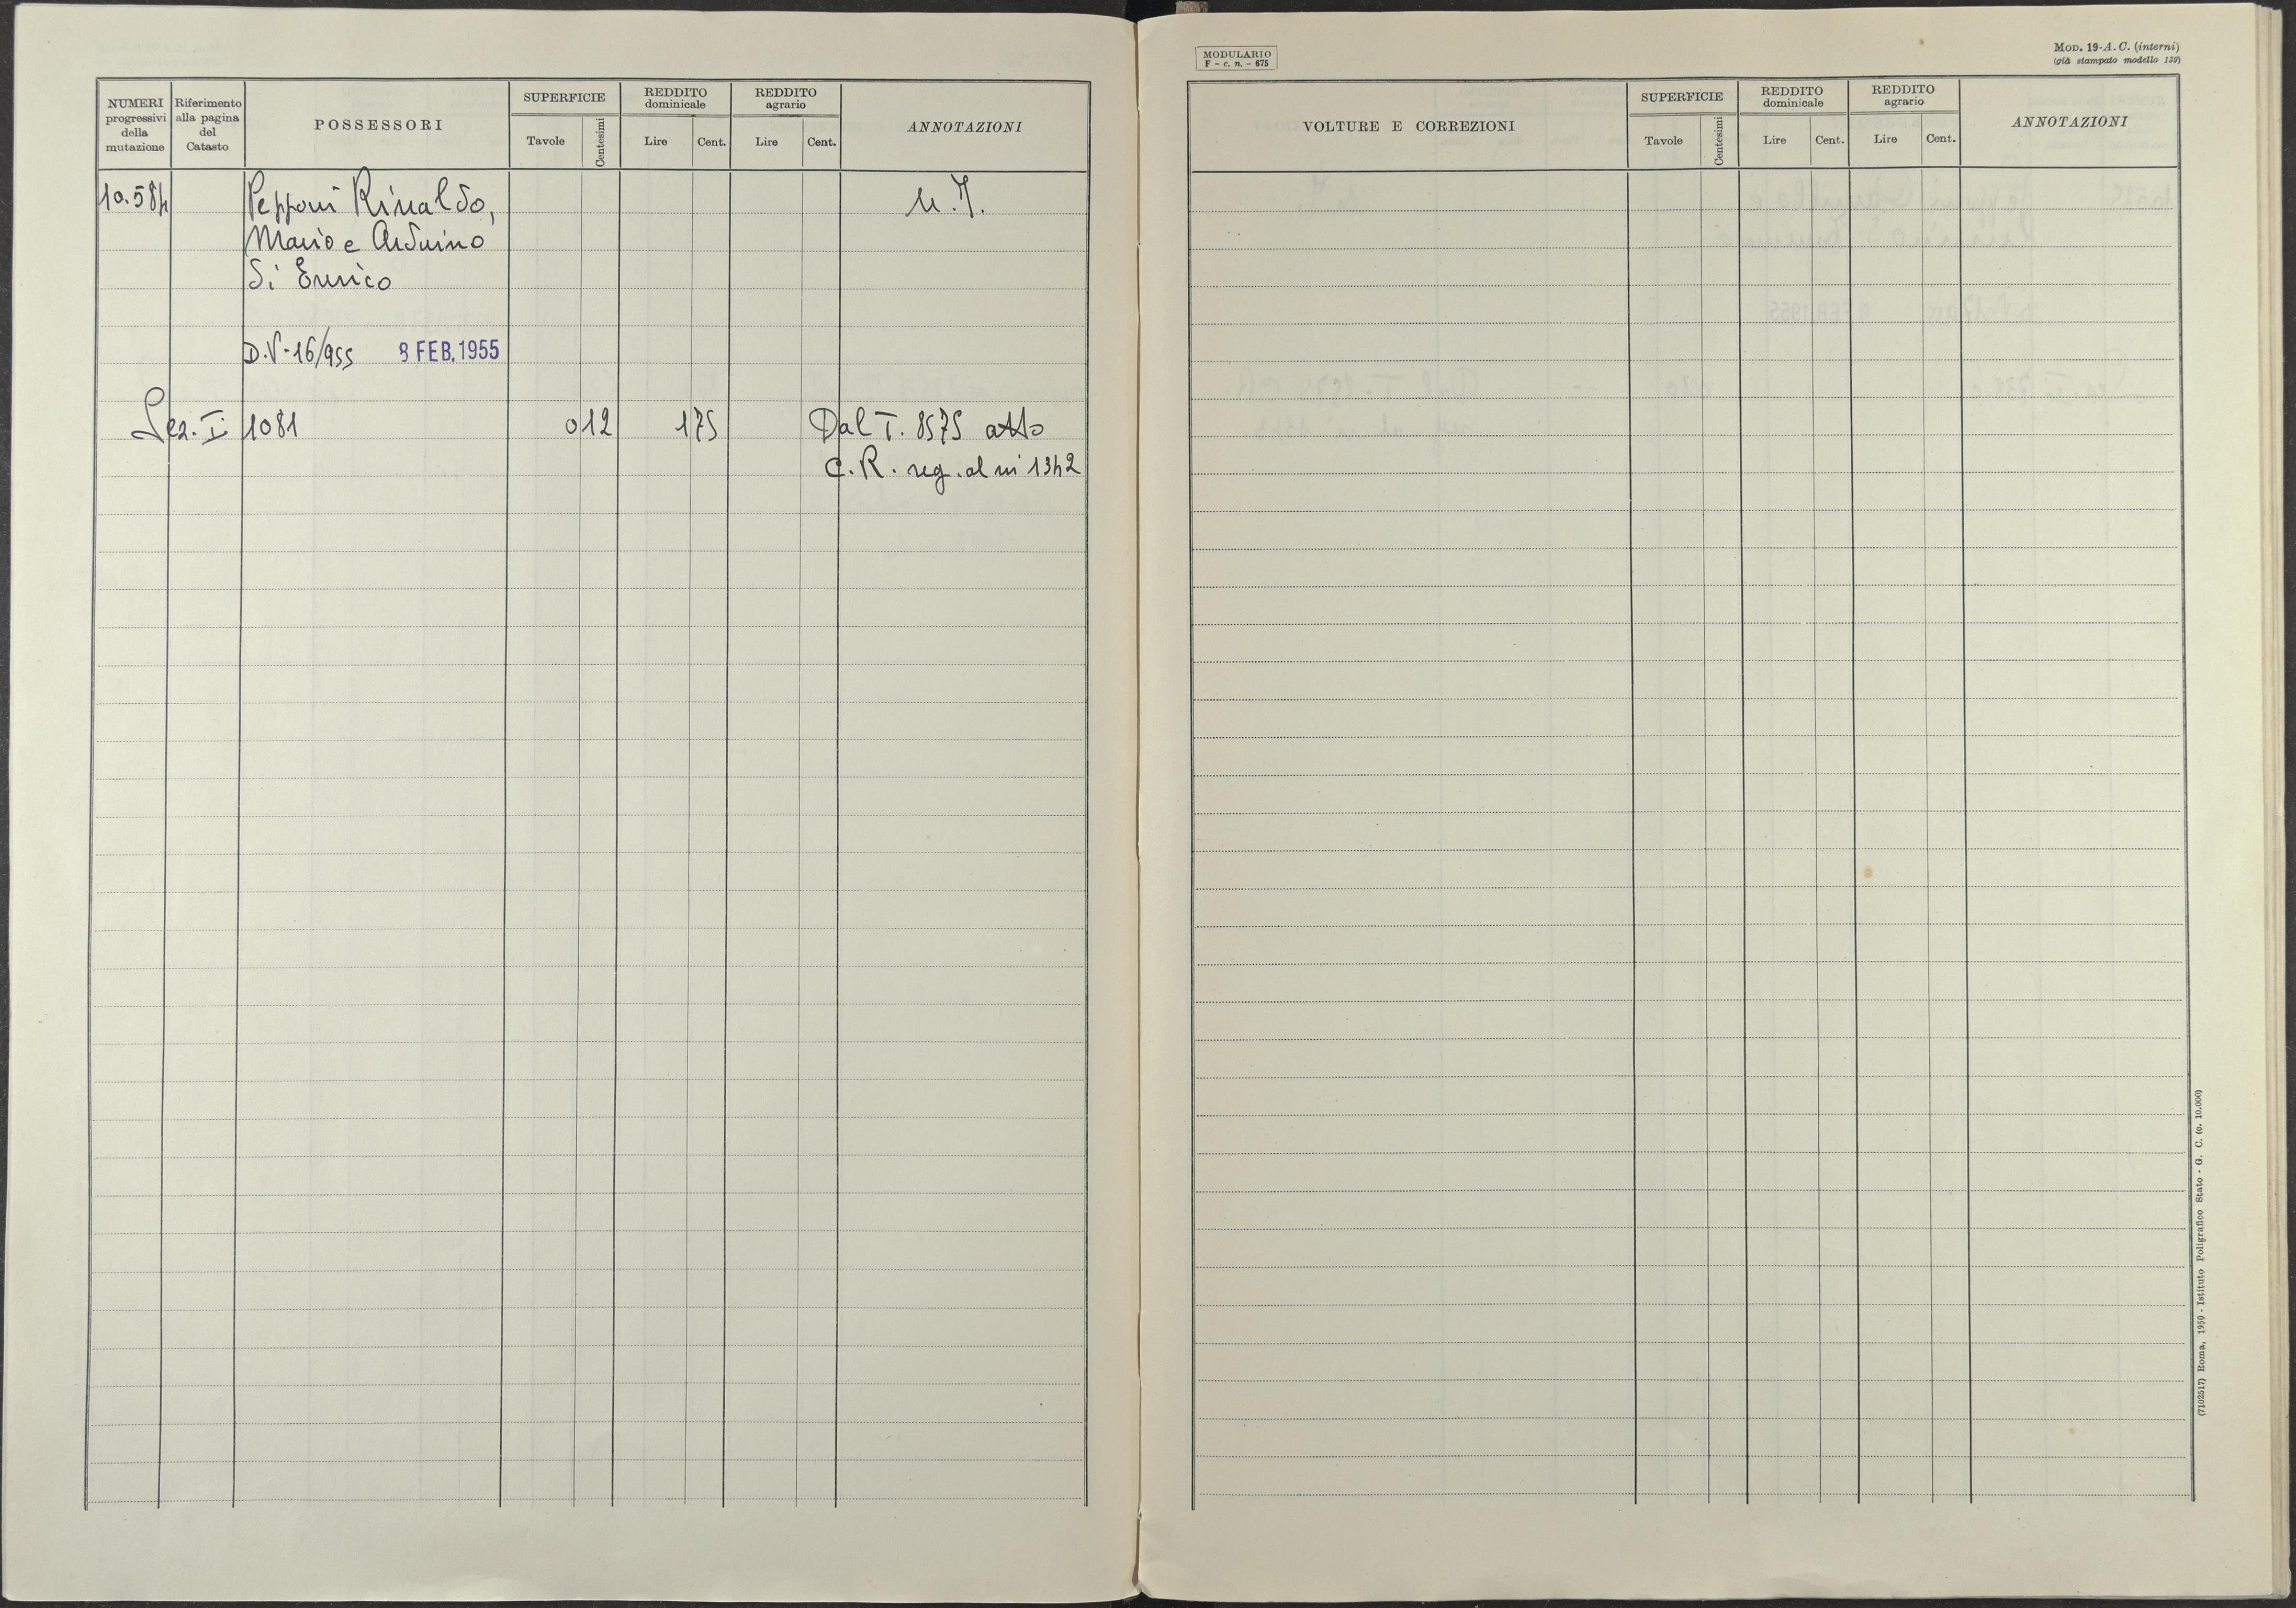 NUMERI progressivi della mutazione
Riferimento alla pagina del Catasto
POSSESSORI
SUPERFICIE
Tavole
Centesimi
REDDITO dominicale
Lire
Cent.
REDDITO agrario
Lire
Cent.
ANNOTAZIONI
10.584
Pepponi Rinaldo,
Mario e Arduino
di Enrico
D.V. 16/955 8 FEB. 1955
Sez. I 1081 0 12 1 75 Dal T. 8575 atto
C.R. reg. al n. 1342
MODULARIO
F - c. n. - 675
MOD. 19-A. C. (interni)
(già stampato modello 139)
VOLTURE E CORREZIONI
SUPERFICIE
Tavole
Centesimi
REDDITO dominicale
Lire
Cent.
REDDITO agrario
Lire
Cent.
ANNOTAZIONI
(7102517) Roma, 1950 - Istituto Poligrafico Stato - G. C. (c. 10.000)